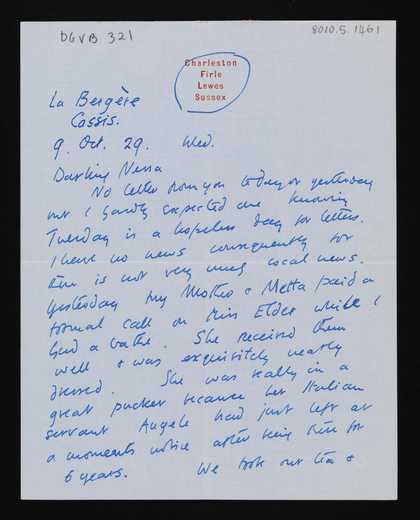 DGVB 321
8010.5.1461
Charleston
Firle
Lewes
Sussex
La Bergère
Cassis.
9. Oct. 29. Wed.
Darling Nessa
No letter from you today or yesterday
but I hardly expected one knowing
Tuesday is a hopeless day for letters.
I have no news consequently for
there is not very much local news.
Yesterday my Mother & Metta paid a
formal call on Miss Elder while I
had a bathe. She received them
well & was exquisitely neatly
dressed. She was really in a
great pucker because her Italian
servant Angele had just left at
a moments notice after being there for
6 years. We took our tea &